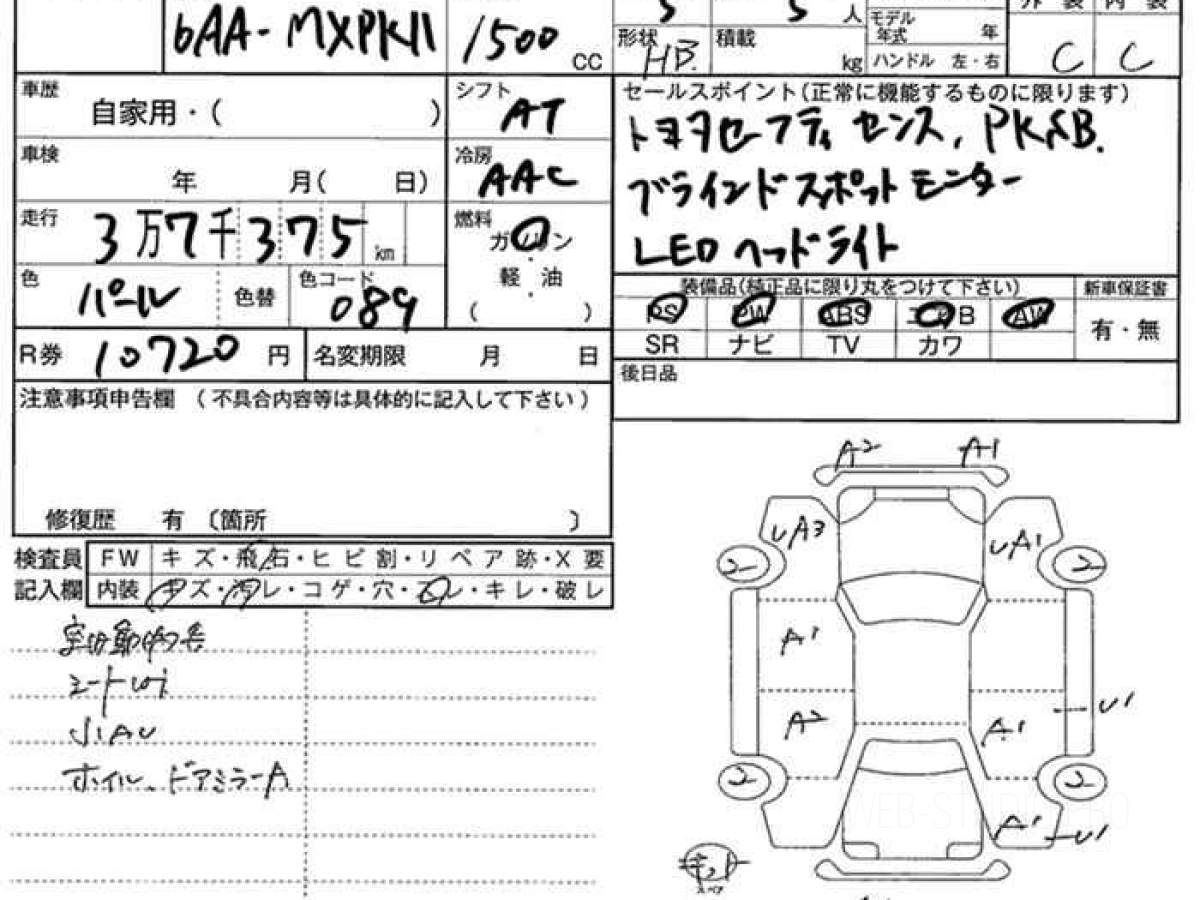 6AA-MXPK11
1500 cc
5 5 人
モデル年式 年
形状 HB 積載 kg
ハンドル 左・右
C C
車歴 自家用・( )
シフト AT
車検 年 月( 日)
冷房 AAC
走行 3万7千375 km
燃料 ガソリン
軽油
( )
色 パール 色替 色コード 089
R券 10720 円 名変期限 月 日
セールスポイント(正常に機能するものに限ります)
トヨタセーフティセンス, PKSB.
ブラインドスポットモニター
LEDヘッドライト
装備品(純正品に限り丸をつけて下さい) 新車保証書
PS PW ABS エアB AW 有・無
SR ナビ TV カワ
後日品
注意事項申告欄 (不具合内容等は具体的に記入して下さい)
修復歴 有 〔箇所 〕
検査員 FW キズ・飛石・ヒビ割・リペア跡・X要
記入欄 内装 キズ・汚レ・コゲ・穴・スレ・キレ・破レ
小AU
ホイル、ドアミラーA
A2 A1
UA3 UA1
2 2
A1
A2 A1 U1
2 2
A1 U1
キット
スペア
WEB-ST